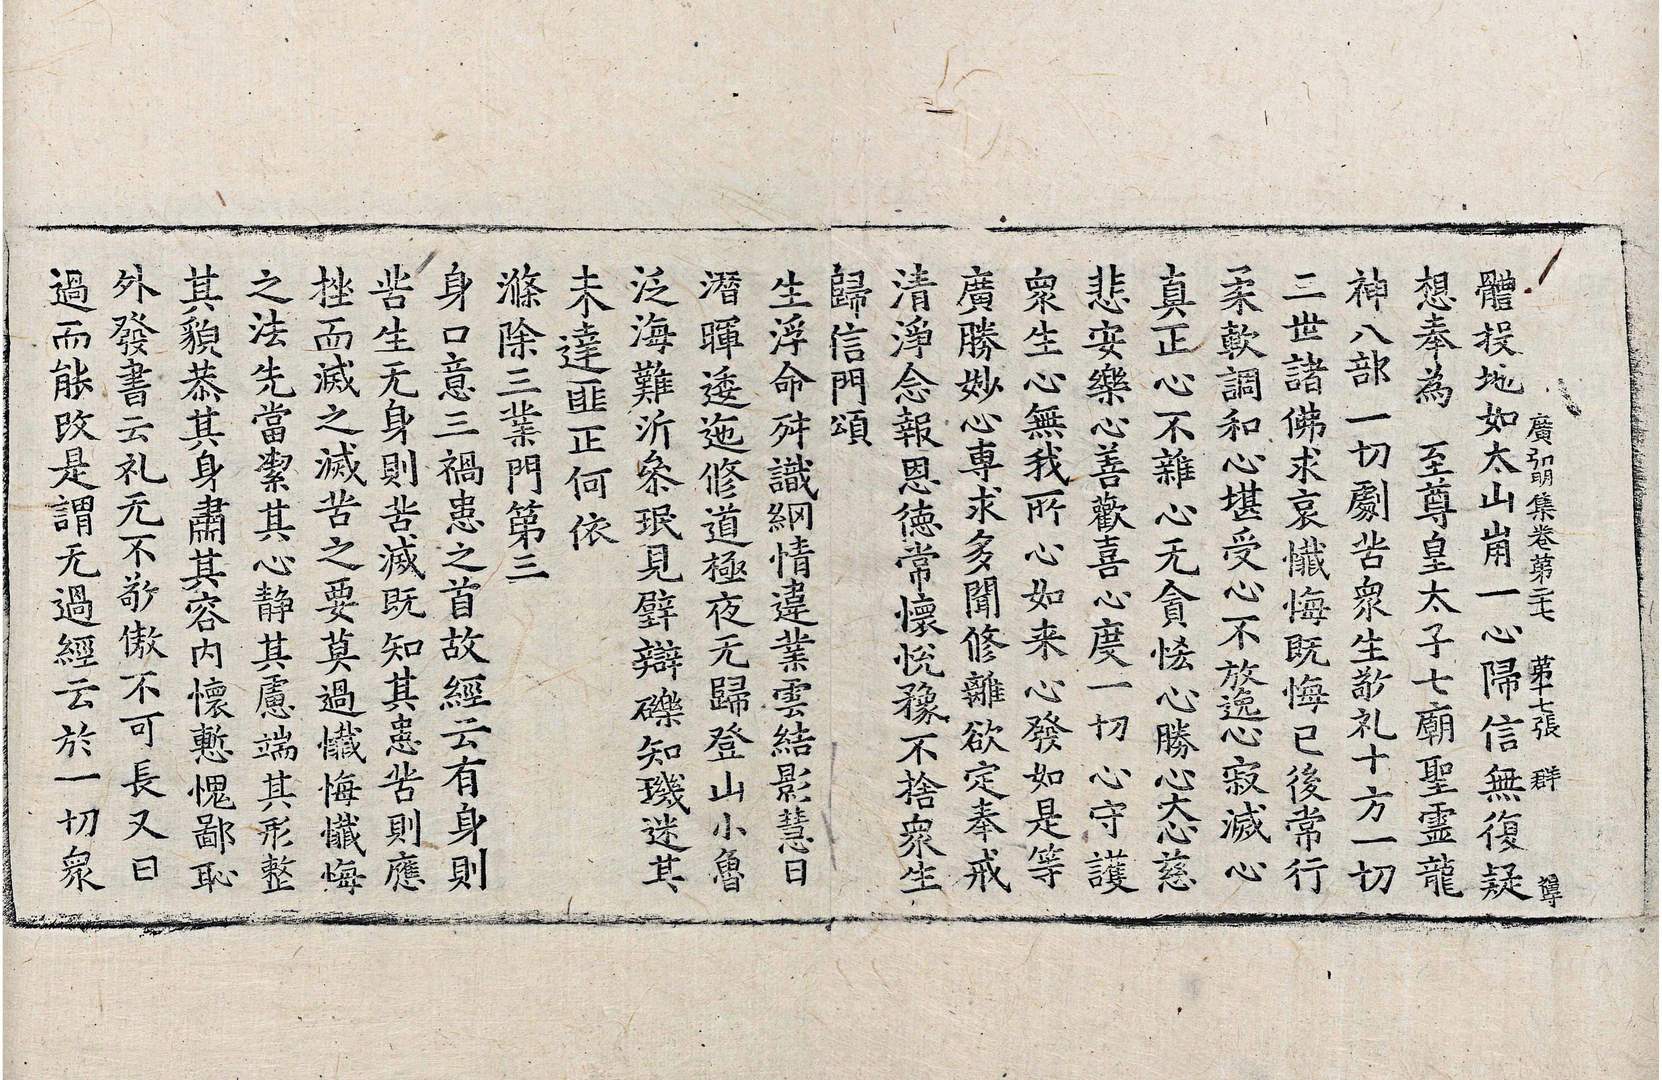 廣弘明集卷第二七 第十七張 群 導
體投地如太山崩一心歸信無復疑
想奉為 至尊皇太子七廟聖靈龍
神八部一切劇苦衆生敬礼十方一切
三世諸佛求哀懺悔既悔已後常行
柔軟調和心堪受心不放逸心寂滅心
真正心不雜心无貪悋心勝心大心慈
悲安樂心善歡喜心度一切心守護
衆生心無我所心如来心發如是等
廣勝妙心専求多聞修離欲定奉戒
清淨念報恩德常懷悅豫不捨衆生
歸信門頌
生浮命舛識綱情違業雲結影慧日
潛暉逶迤修道極夜无歸登山小魯
泛海難沂叅珉見璧辯礫知璣迷其
未達匪正何依
滌除三業門第三
身口意三禍患之首故經云有身則
苦生无身則苦滅既知其患苦則應
挫而滅之滅苦之要莫過懺悔懺悔
之法先當潔其心静其慮端其形整
其貌恭其身肅其容内懷慙愧鄙恥
外發書云礼无不敬傲不可長又曰
過而能改是謂无過經云於一切衆